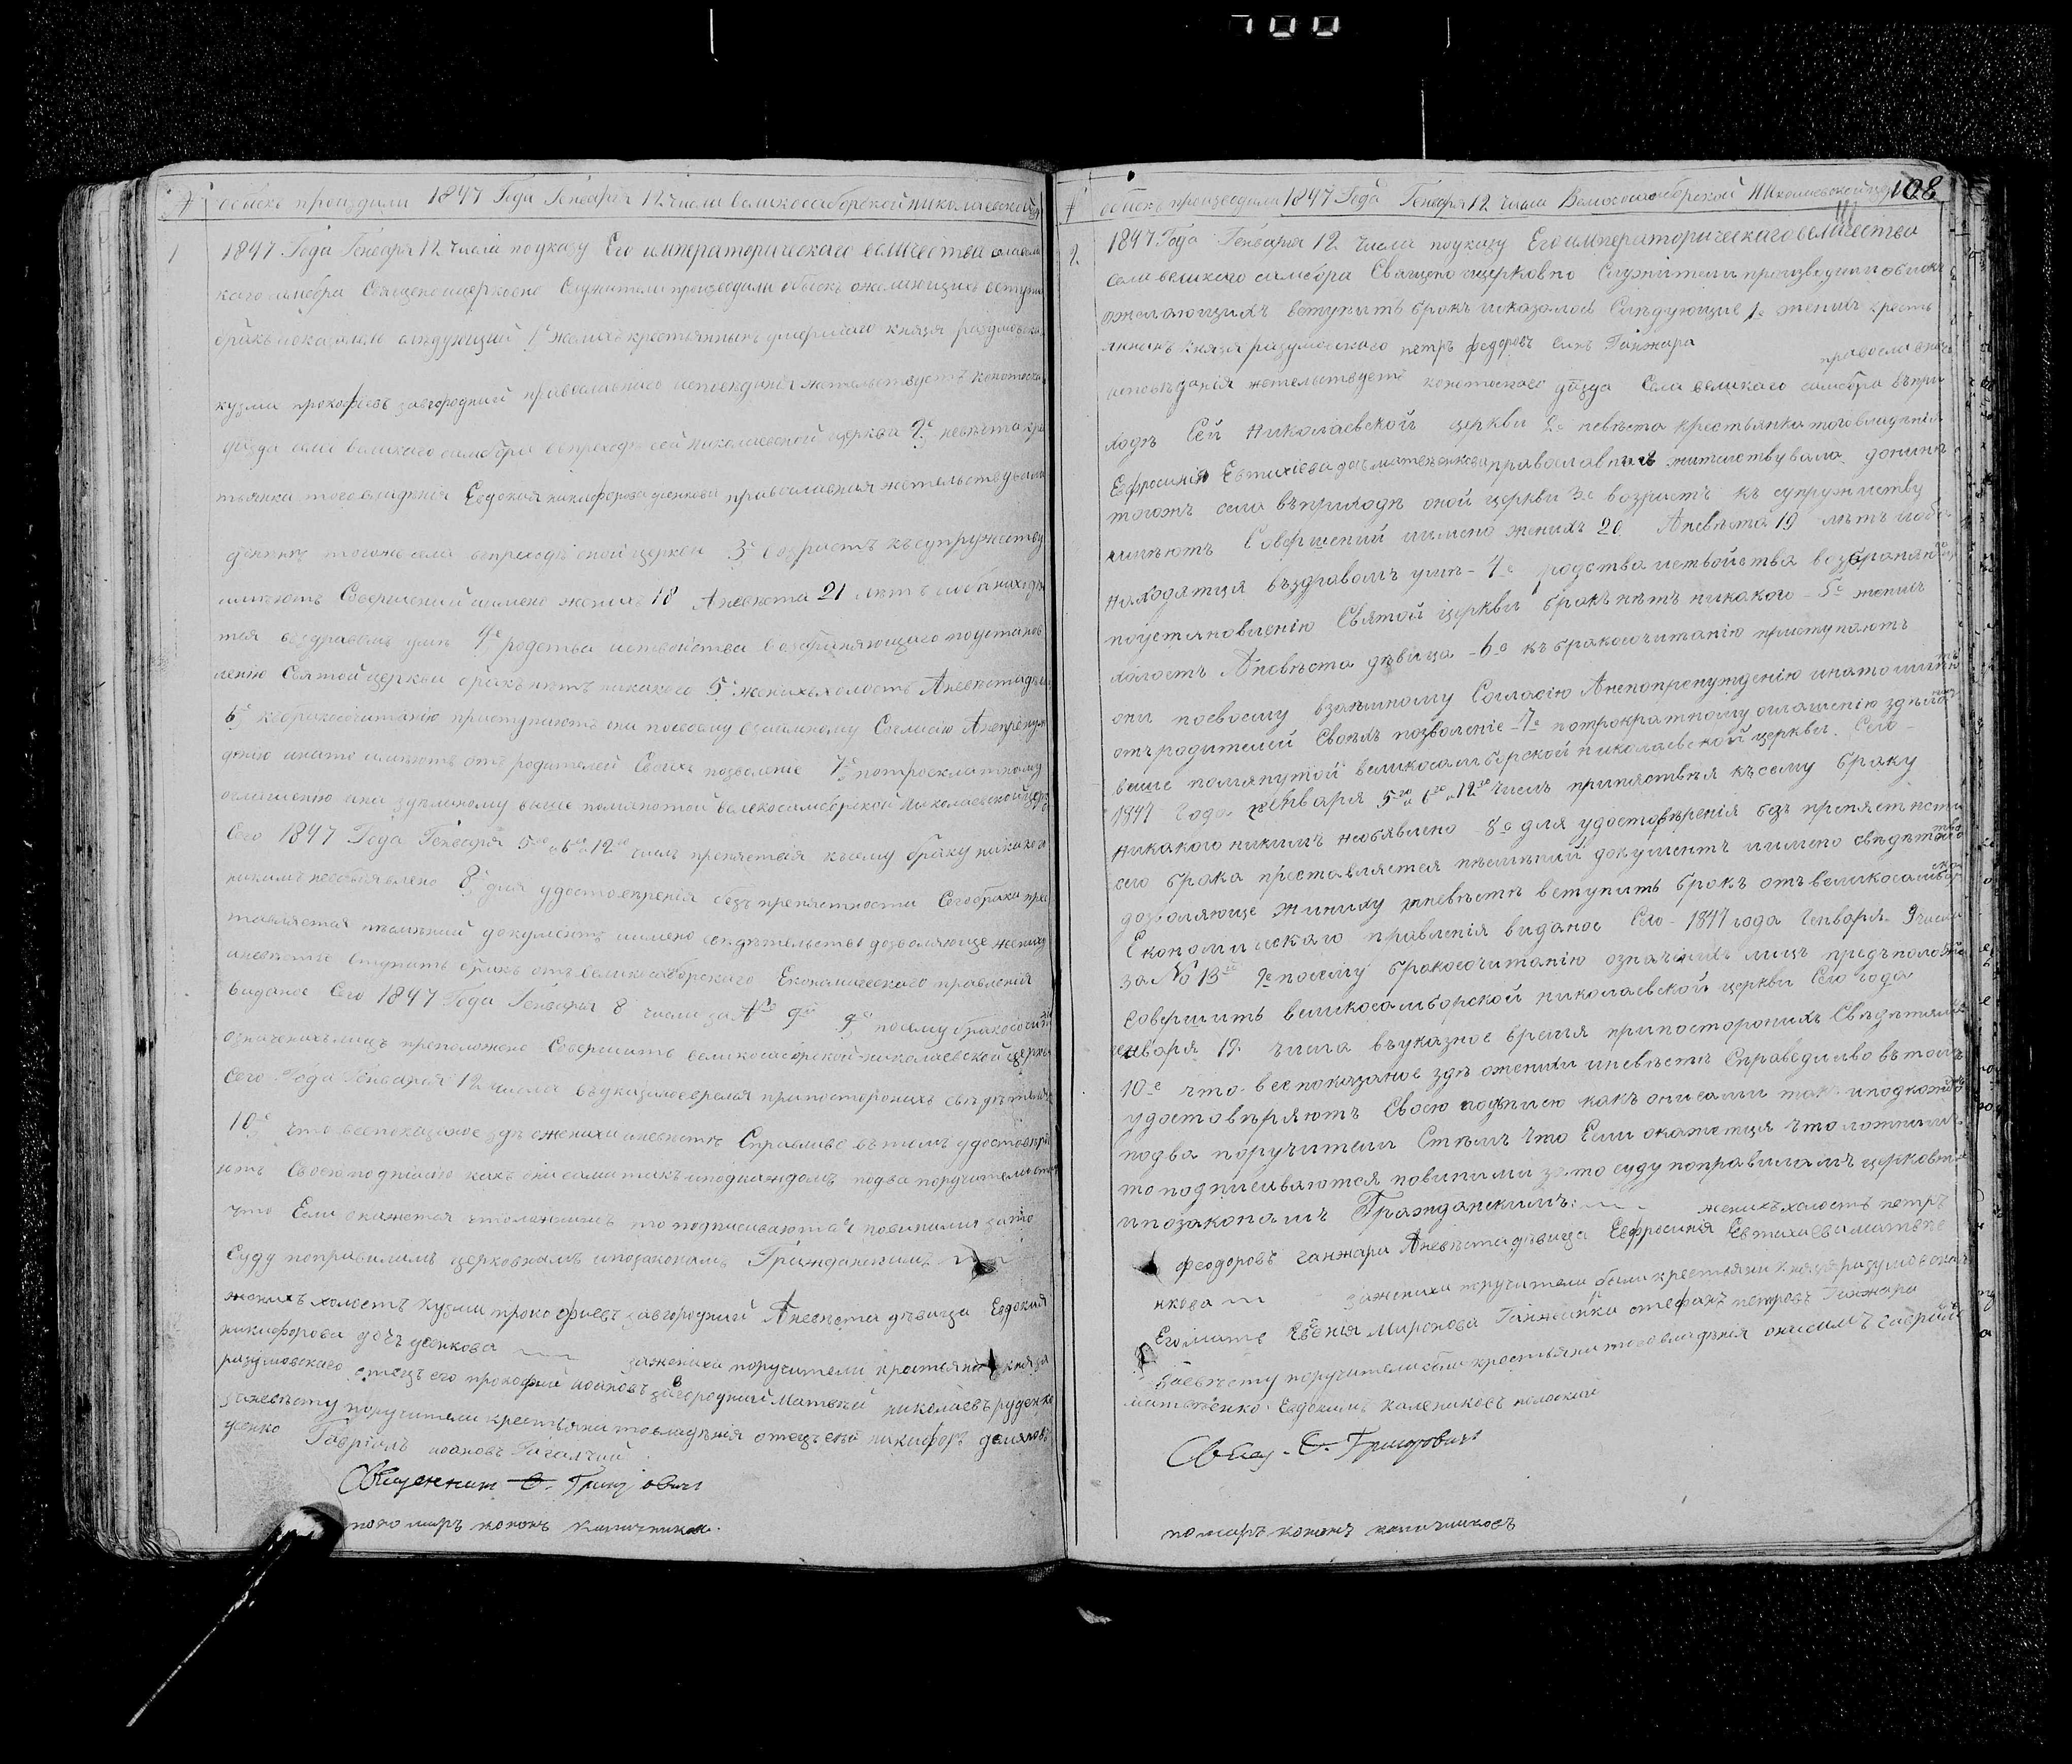 обискъ произдили 1847 Года Генваря 12 числа великосамборской николаевской
1
1847 Года Генваря 12 числа поуказу Его императорическаго величества
каго самбора Священоицерковно Служители производили обыскъ ожелающихъ вступить
бракъ показалось слѣдующий 1е женихъ крестьянинъ умершаго князя разумовска
кузма прокофіевъ завгородний православнаго исповеданія жительствуетъ конотоска
уѣзда села великаго самбора вприходѣ сей николаевской церкви 2е невѣста кре
тьянка того владѣнія Евдокия никифорова православная жительствовала
донинѣ тогожъ села вприходѣ оной церкви 3е возрастъ къ супружеству
имѣютъ Совершений имено женихъ 18 Аневѣста 21 лѣтъ иоба находя
тся воздравомъ умѣ 4е родства исвойства возбраняющаго поустанов
лению Святой церкви бракъ нѣтъ никакого 5е женихъ холостъ Аневѣста дѣви
6е къбракосочитанію приступаютъ они посвоему взаимному Согласію Анепринуж
дению инато имѣютъ отъ родителей Своихъ позволение 7е потроекратному
оглашению выше помянотой великосамборской николаевской цер
Сего 1847 Года Генваря 5го 6го 12го числъ препятствія къ сему браку никакого
никимъ необявлено 8е для удостоверения безъ препятности Сего брака прес
тавляется писмений документъ имено свидѣтельство дозволяюще жениху
иневѣсте вступить бракъ отъ великосамборского Економического правления
виданое Сего 1847 Года Генваря 8 числа за № 9е посему бракосочитанию
означенихъ лицъ преположено Совершить великосамборской николаевской церкви
Сего Года Генваря 12 числа въуказное время припосторонихъ свѣдетеляхъ
10е что все показаное здѣ ожениха иневѣсте Справливо вътомъ удостоверя
ютъ Своею подписью какъ они сами такъ иподкаждомъ подва поручителя стѣмъ
что Если окажется что ложнимъ то подписиваются повинни зато
Суду поправиламъ церковнымъ ипозаконамъ Гражданскимъ
женихъ холостъ кузма прокофиевъ завгородний Аневѣста дѣвица Евдокия
никифорова дочъ
зажениха поручители крестьяни князя
разумовскаго отецъ его прокофий иоановъ завгородний Матвей николаевъ руденко
заневѣсту поручители крестьяни товладѣния отецъ ей никифоръ
Гавриилъ иоановъ
Священникъ Григоровичъ
пономаръ кононъ
108
обискъ производили 1847 Года Генваря 12 числа Великосамборской Николаевской цер
2
1847 Года Генваря 12 числа поуказу Его императорическаго величества
села великаго самбора Священо ицерковно Служители производили обискъ
ожелающихъ вступить бракъ ипоказалось Слѣдующие 1е женихъ кресть
янинъ князя разумовского петръ федоровъ синъ Ганжара православнаго
исповѣданія жительствуетъ конотоскаго уѣзда Села великаго самбора въпри
ходѣ Сей николаевской церкви 2е невѣста крестьянка того владѣнія
Ефросиния Евтихіева дочъ матвѣенкова православная жительствувала донинѣ
тогожъ села въприходѣ оной церкви 3е возрастъ къ супружеству
имѣютъ Совершений имено женихъ 20 Аневѣста 19 лѣтъ иоба
находятця въздравомъ умѣ 4е родства исвойства возбраняющ
поустановленію Святой церкви бракъ нѣтъ никакого 5е женихъ
холостъ Аневѣста дѣвица 6е къ бракосочитанію приступаютъ
они посвоему взаимному Согласію Анепопренужденію инато имѣю
отъродителей Своихъ позволение 7е потрократному оглашению здѣлано
више помянутой великосамборской николаевской церкви. Сего
1847 Года генваря 5го 6го 12го числъ припяствія късему браку
никакого никимъ необявлено 8е для удостовѣрения безъ препятности
сего брака преставляется писмений документъ имено свѣдѣтельство
дозволяюще жиниху иневѣстѣ вступить бракъ отъ великосамборскаго
Економискаго правленія виданое Сего 1847 года Генваря 9 числа
за № 13 9е посему бракосочитанію означенихъ лицъ предположено
Совершить великосамборской николаевской церкви Сего года
генваря 12 числа въуказное время припосторонихъ Свѣдетеляхъ
10е что все показаное здѣ ожениха иневѣстѣ Справедливо вътомъ
удостовѣряютъ Своею подписю какъ они сами такъ иподкаждомъ
подва поручители Стѣмъ что Если окажетця что ложнимъ
то подписиваются повиними зато суду поправиламъ церковнимъ
ипозаконамъ Гражданскимъ: женихъ холостъ петръ
феодоровъ ганжара Аневѣста дѣвица Евфросиния Евтихиева матвѣе
нкова зажениха поручители были крестьяни князя разумовскаго
Его мать Евгѣния Миронова Ганжаика стефанъ петровъ Ганжара
заевѣсту поручители были крестьяни того владѣния
матвѣенко Евдокимъ калениковъ
Свящ. Григоровичъ
помаръ кононъ